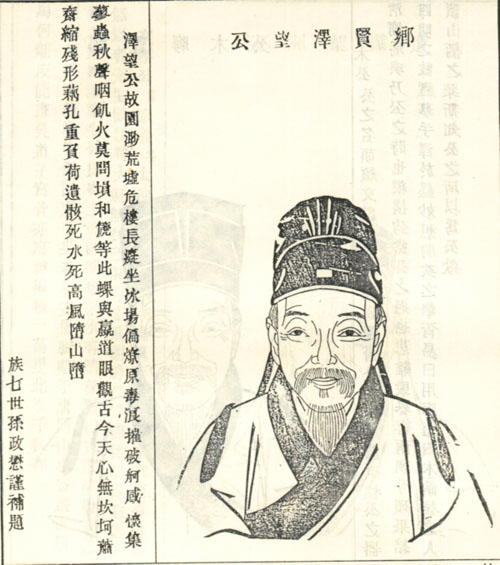 鄉賢澤望公
澤望公故園渺荒墟危樓長癡坐冰場偏燎原毒浪摧破舸感懷集
蓼蟲秋聲咽飢火莫問塤和篪等此螺與蠃道眼觀古今天心無坎坷蕭
齋縮殘形藕孔重負荷遺骸死水死高風墮山墮
族七世孫政懋謹補題